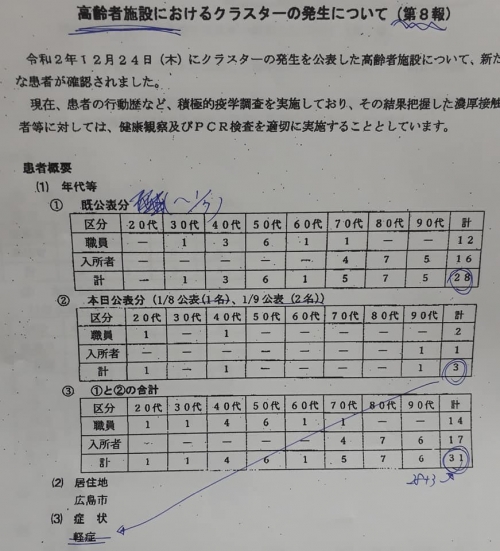 高齢者施設におけるクラスターの発生について（第８報）
令和２年１２月２４日（木）にクラスターの発生を公表した高齢者施設について、新た
な患者が確認されました。
現在、患者の行動歴など、積極的疫学調査を実施しており、その結果把握した濃厚接触
者等に対しては、健康観察及びＰＣＲ検査を適切に実施することとしています。
患者概要
(1) 年代等
① 既公表分 (～1/7)
区分 ２０代 ３０代 ４０代 ５０代 ６０代 ７０代 ８０代 ９０代 計
職員 － 1 3 6 1 1 － － 12
入所者 － － － － － 4 7 5 16
計 － 1 3 6 1 5 7 5 28
② 本日公表分（1/8公表(1名)、1/9公表（2名））
区分 ２０代 ３０代 ４０代 ５０代 ６０代 ７０代 ８０代 ９０代 計
職員 1 － 1 － － － － － 2
入所者 － － － － － － － 1 1
計 1 － 1 － － － － 1 3
③ ①と②の合計
区分 ２０代 ３０代 ４０代 ５０代 ６０代 ７０代 ８０代 ９０代 計
職員 1 1 4 6 1 1 － － 14
入所者 － － － － － 4 7 6 17
計 1 1 4 6 1 5 7 6 31
28+3
(2) 居住地
広島市
(3) 症状
軽症